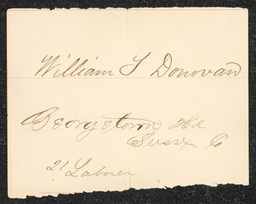 William T Donovan
Georgetown Hd
Sussex Co
21 Laborer